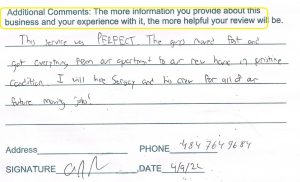 Additional Comments: The more information you provide about this
business and your experience with it, the more helpful your review will be.
This service was PERFECT. The guys moved fast and
got everything from our apartment to our new home in pristine
condition. I will hire Sergey and his crew for all of our
future moving jobs!
Address PHONE 484 764 9684
SIGNATURE DATE 4/9/22